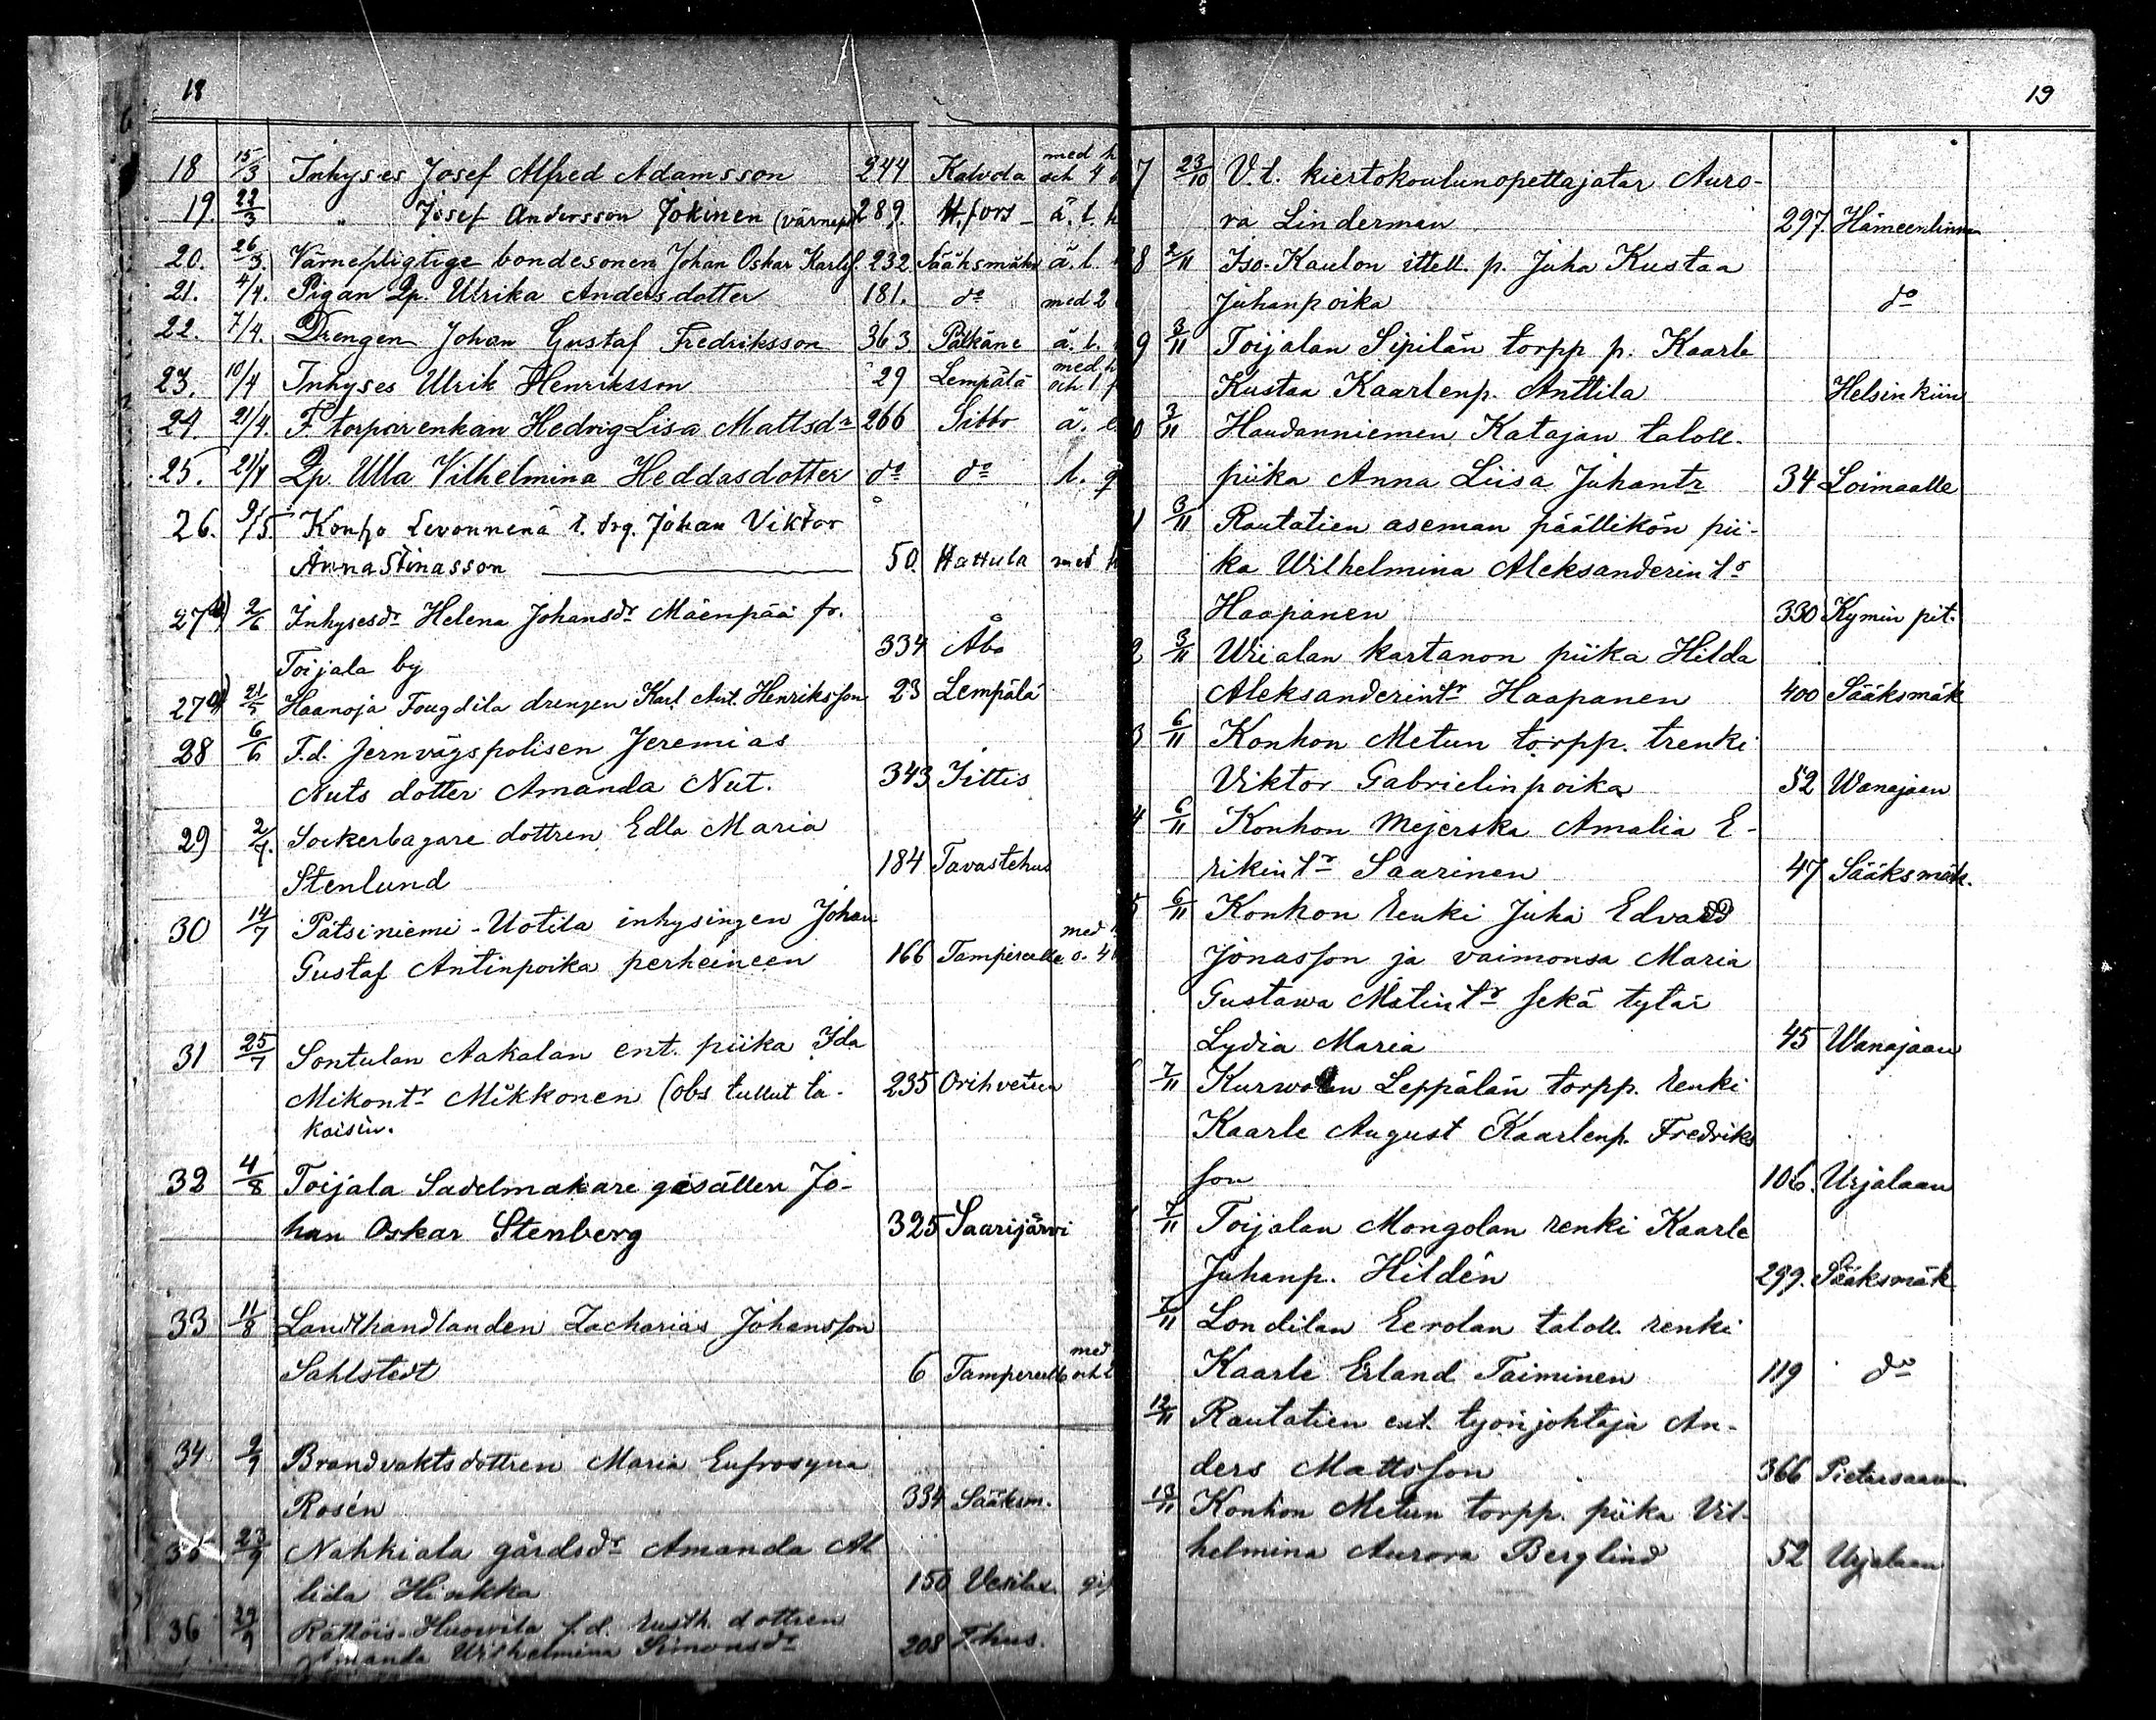 18
18 15/3 Inhyses Josef Alfred Adamsson 244 Kalvola med h och 4
19. 22/3 " Josef Andersson Jokinen (värnepl 289. H.fors ä. l. h
20. 26/3. Värnepligtige bondesonen Johan Oskar Karlsf. 232 Sääksmäki ä. l.
21. 4/4. Pigan Qp. Ulrika Andersdotter 181. do med 2
22. 7/4. Drengen Johan Gustaf Fredriksson 363 Pälkäne ä. l.
23. 10/4 Inhyses Ulrik Henriksson 29 Lempälä med h och 1 f
24 21/4. F. torparenkan Hedvig Lisa Mattsdr 266 Sibbo ä. e
25. 21/4 Qp. Ulla Vilhelmina Heddasdotter do do l. g
26. 9/5. Konho Levonnenä t. drg. Johan Viktor
Anna Stinasson 50. Hattula med h
27 b) 2/6 Inhysesdr Helena Johansdr Mäenpää fr.
Toijala by 334 Åbo
27 a) 21/5 Haanoja Fougdila drengen Karl Ant. Henriksson 23 Lempälä
28 6/6 F.d. jernvägspolisen Jeremias
Nuts dotter Amanda Nut. 343 Iittis
29 2/7. Sockerbagare dottren Edla Maria
Stenlund 184 Tavastehus
30 14/7 Pätsiniemi-Uotila inhysingen Johan
Gustaf Antinpoika perheineen 166 Tampereelle med o. 4
31 25/7 Sontulan Aakalan ent. piika Ida
Mikontr Mikkonen (obs tullut ta- 235 Orihvetun
kaisin.
32 4/8 Toijala Sadelmakare gesällen Jo-
han Oskar Stenberg 325 Saarijärvi
33 11/8 Landthandlanden Zacharias Johansson
Sahlstedt 6 Tampereelle med och 2
34 2/9 Brandvaktsdottren Maria Eufrosyna
Rosén 334 Sääksm.
35 23/9 Nahkiala gårdsdr Amanda Al
lida Hinkka 150 Vesilax. gif
36 29/9 Rättöis-Huovila f.d. rusth. dottren
Amanda Wilhelmina Simonsdr 208 T.hus.
19
7 23/10 V.t. kiertokoulunopettajatar Auro-
ra Linderman 297. Hämeenlinna
8 2/11 Iso-Kaulon ittell. p. Juha Kustaa
Juhanpoika do
9 3/11 Toijalan Sipilän torpp p. Kaarle
Kustaa Kaarlenp. Anttila Helsinkiin
0 3/11 Haudanniemen Katajan taloll.
piika Anna Liisa Juhantr 34 Loimaalle
1 3/11 Rautatien aseman päällikön pii-
ka Wilhelmina Aleksanderintr
Haapanen 330 Kymin pit.
2 3/11 Wiialan kartanon piika Hilda
Aleksanderintr Haapanen 400 Sääksmäk
3 6/11 Konhon Metun torpp. trenki
Viktor Gabrielinpoika 52 Wanajaen
4 6/11 Konhon Mejerska Amalia E-
rikintr Saarinen 47 Sääksmäk.
5 6/11 Konhon renki Juha Edvard
Jonasson ja vaimonsa Maria
Gustawa Matintr sekä tytär
Lydia Maria 45 Wanajaan
7/11 Kurwolan Leppälän torpp. renki
Kaarle August Kaarlenp. Fredriks
son 106. Urjalaan
7/11 Toijalan Mongolan renki Kaarle
Juhanp. Hildén 299. Sääksmäk
7/11 Londilan Eerolan taloll. renki
Kaarle Erland Taiminen 119 do
12/11 Rautatien ent. työnjohtaja An-
ders Mattsson 366 Pietarsaaren
13/11 Konhon Metun torpp. piika Vil-
helmina Aurora Berglind 52 Urjalaan